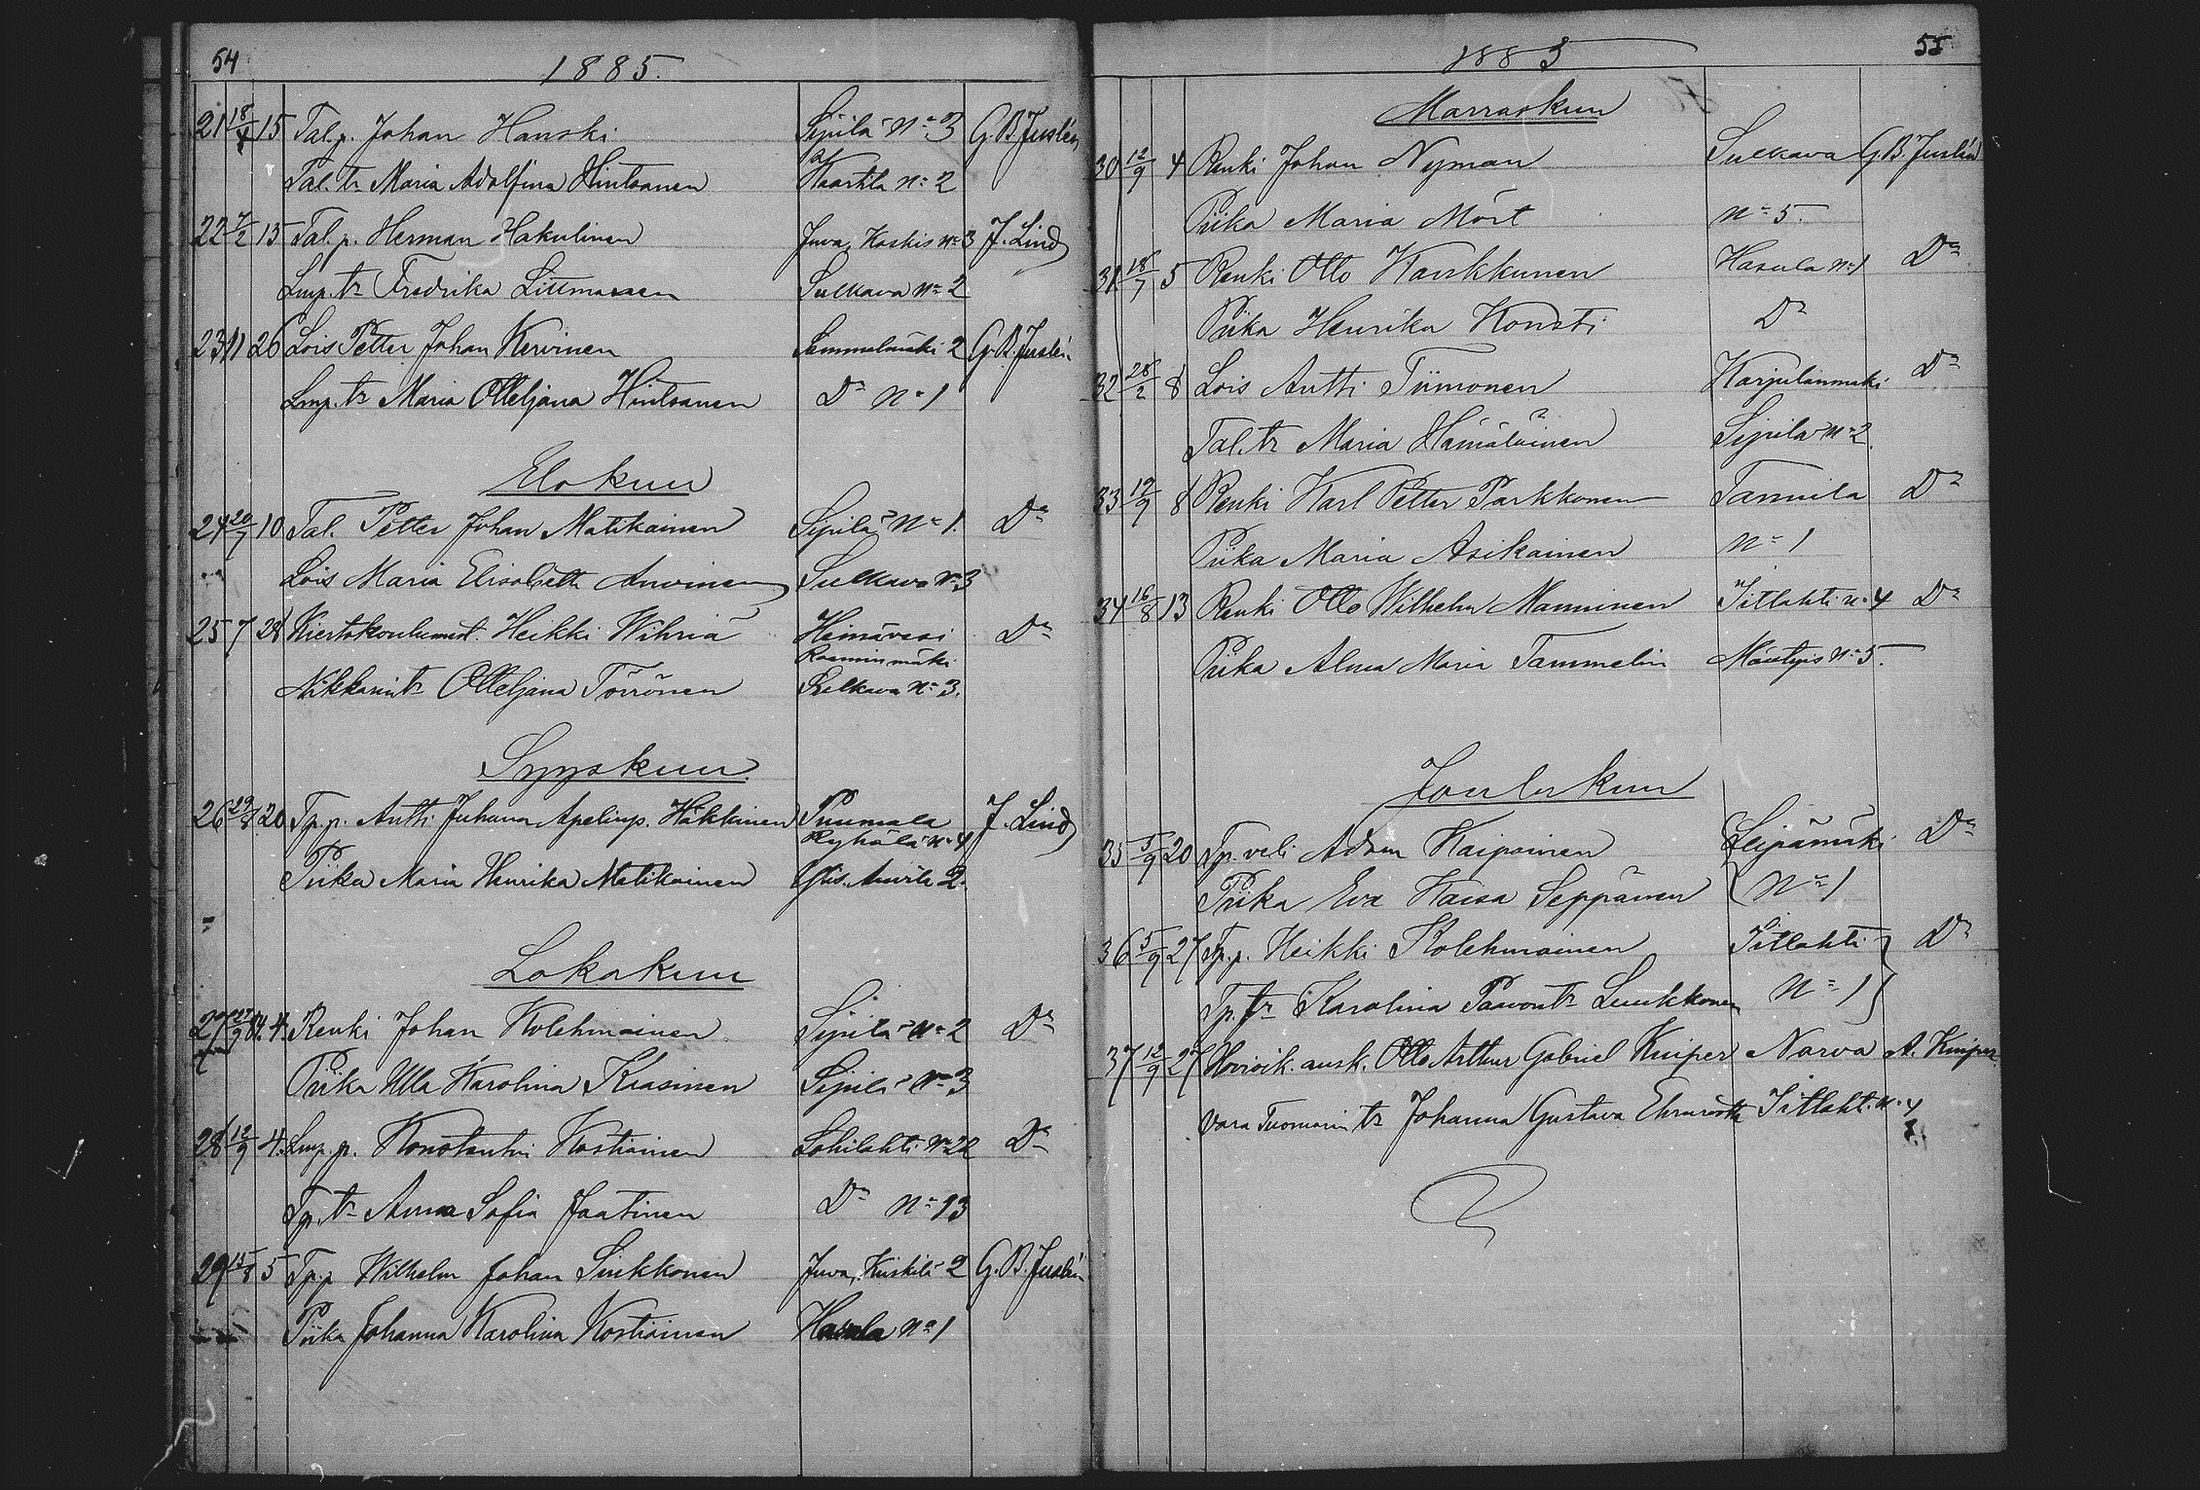 54
1885.
21 18/4 15 Tal.p. Johan Hanski Sipilä N:o 3 G.B. Juslén
Tal. tr Maria Adolfina Hintsanen Kaartila N:o 2
22 7/2 15 Tal. p. Herman Hakulinen Juva, Koskis N:o 3 J. Lind
Lmp. tr Fredrika Littmanen Sulkava N:o 2
23 11 26 Lois Petter Johan Kervinen Sammalmäki 2 G.B. Juslén
Lmp. tr Maria Otteljana Hintsanen D:o N:o 1
Elokuu
24 20/7 10 Tal. Petter Johan Matikainen Sipilä N:o 1. D:o
Lois Maria Elisabeth Auvinen Sulkava N:o 3
25 7 28 Kiertokoulumest. Heikki Wihriä Heinävesi D:o
Rasminmäki
Nikkarintr Otteljana Törrönen Sulkava N:o 3.
Syyskuu.
26 29/8 20 Tp.p. Antti Juhana Apelinp. Häkkinen Puumala J. Lind
Ryhälä N:o 4
Piika Maria Henrika Matikainen Auvila 2.
Lokakuu
27 4. Renki Johan Kolehmainen Sipilä N:o 2 D:o
Piika Ulla Karolina Kiasinen Sipilä N:o 3
28 12/9 4. Lmp. p. Konstantin Kostiainen Lohilahti N:o 22 D:o
Tp. tr Anna Sofia Jaatinen D:o N:o 13
29 15/8 5 Tp.p Wilhelm Johan Sinkkonen Juva, Kiiskilä 2 G.B. Juslén
Piika Johanna Karolina Kostiainen Hasula N:o 1
55
1885
Marraskuu
30 12/9 4 Renki Johan Nyman Sulkava G.B. Juslén
Piika Maria Mört N:o 5.
31 18/7 5 Renki Otto Karkkunen Hasula N:o 1 D:o
Piika Henrika Konsti D:o
32 28/2 8 Lois Antti Tiimonen Karjulanmäki D:o
Tal. tr Maria Hämäläinen Sipilä N:o 2.
33 19/9 8 Renki Karl Petter Parkkonen Tannila D:o
Piika Maria Asikainen N:o 1
34 16/8 13 Renki Otto Wilhelm Manninen Iitlahti N:o 4 D:o
Piika Alma Maria Tammelin Mäntyis N:o 5.
Joulukuu
35 5/9 20 Tp. veli Adam Kaipainen Leipämäki D:o
Piika Eva Kaisa Seppänen N:o 1
36 5/9 27 Tp.p. Heikki Kolehmainen Iitlahti D:o
Tp. tr Karolina Paavontr Luukkonen N:o 1
37 12/9 27 Hovioik. ausk. Otto Arthur Gabriel Kniper Narva A. Kniper.
Vara Tuomarin tr Johanna Gustava Ehrnrooth Iitlahti N:o 4